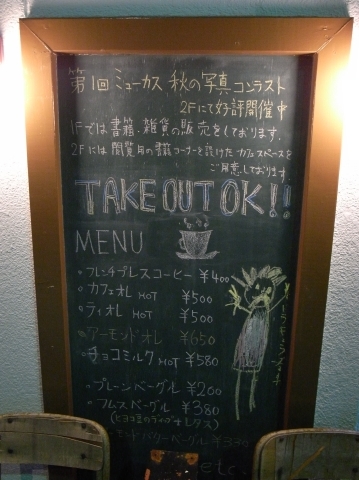 第1回 ミューカス 秋の写真コンテスト
2Fにて好評開催中
1Fでは書籍・雑貨の販売をしております.
2Fには閲覧用の書籍コーナーを設けたカフェスペースを
ご用意しております.
TAKE OUT OK!!
MENU
フレンチプレスコーヒー ¥400
カフェオレ HOT ¥500
ティオレ HOT ¥500
アーモンドオレ ¥650
チョコミルク HOT ¥580
プレーンベーグル ¥200
フムスベーグル ¥380
(ヒヨコ豆のディップ+レタス)
etc.